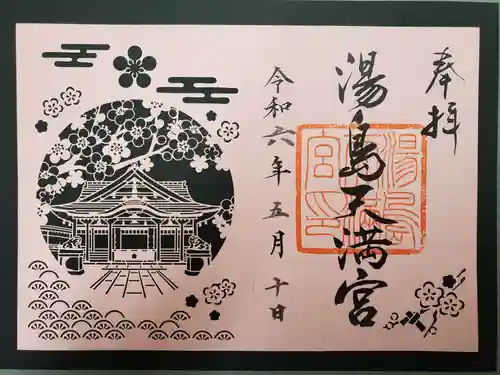 奉拝
湯島天満宮
令和六年五月十日
湯島
天満
宮印